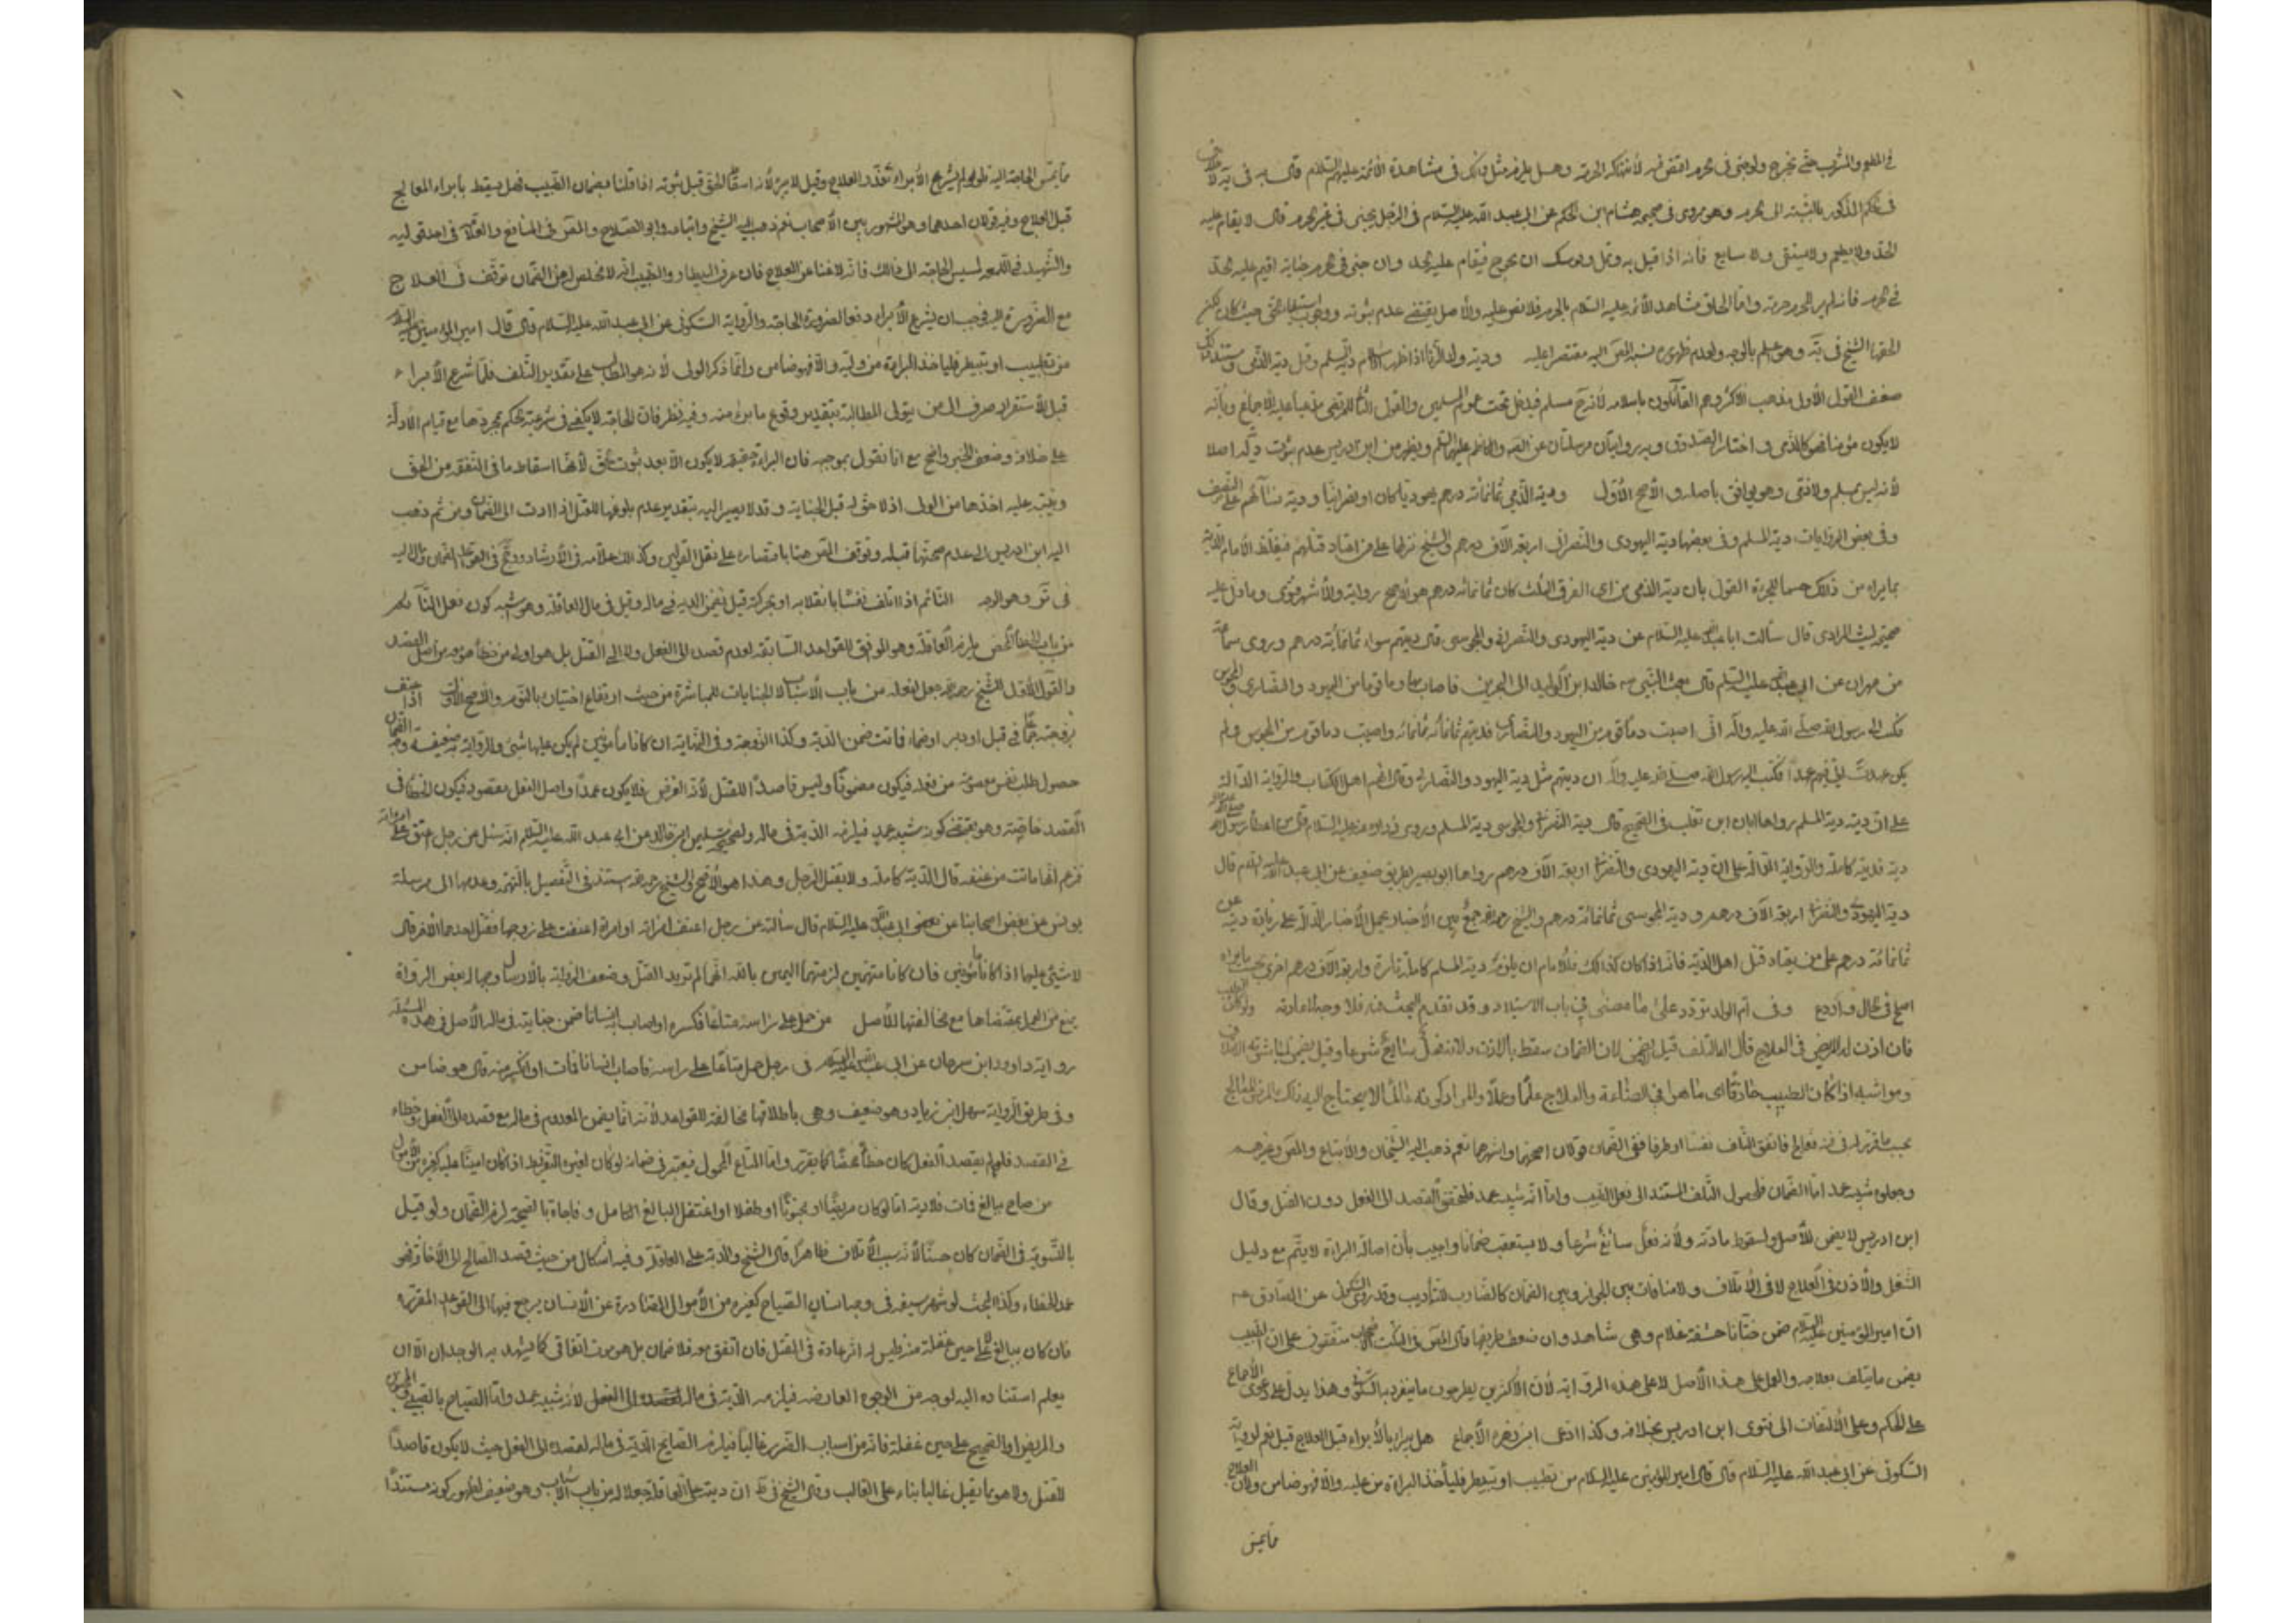 في المطعم والمشرب حتى يخرج ولو جنى في الحرم اقتص منه لانتهاكه الحرمة وهل يلزم مثل ذلك في مشاهدة الائمة عليهم السلام قال به في يه لا
في الحكم المذكور بالنسبة الى الحرم وهو مروى في صحيحة هشام ابن الحكم عن ابي عبد الله عليه السلام في الرجل يجنى في غير الحرم قال لا يقام عليه
الحد ولا يطعم ولا يسقى ولا يبايع فانه اذا فعل به ذلك يوشك ان يخرج فيقام عليه الحد وان جنى في الحرم جناية اقيم عليه الحد
في الحرم فانه لم ير للحرم حرمة واما الحاق مشاهد الائمة عليهم السلام بالحرم فلا نص عليه والاصل يقتضي عدم ثبوته
الحقها الشيخ في يه ولعدم ظهور نسبه المص اليه مقتصرا عليه ودية ولد الزنا اذا اظهر الاسلام دية المسلم وقيل دية الذمي ومستند ذلك
ضعف القول الاول مذهب الاكثر وهم القائلون باسلامه لانه ح مسلم فيدخل تحت عموم المسلمين والقول الثاني للمرتضى مدعيا عليه الاجماع وبانه
لا يكون مؤمنا فهو كالذمي واختاره الصدوق وبه روايتان مرسلتان عن الصادق والكاظم عليهما السلم ويظهر من ابن ادريس عدم ثبوت دية له اصلا
لانه ليس بمسلم ولا ذمي وهو يوافق باصله والاصح الاول ودية الذمي ثمانمائة درهم يهوديا كان او نصرانيا ودية نسائهم على النصف
وفي بعض الروايات دية المسلم وفي بعضها دية اليهودى والنصراني اربعة آلاف درهم والشيخ نزلها على من اعتاد قتلهم فيغلظ الامام الدية
بما يراه من ذلك حسما للجرءة القول بان دية الذمي من اى الفرق الثلث كان ثمانمائة درهم هو الاصح رواية والاشهر فتوى ومما دل عليه
صحيحة ليث المرادي قال سألت ابا عبد الله عليه السلام عن دية اليهودى والنصراني والمجوسى قال ديتهم سواء ثمانمائة درهم وروى سماعة
من مهران عن ابي عبد الله عليه السلم قال بعث النبي صه خالد ابن الوليد الى البحرين فاصاب بها دماء قوم من اليهود والنصارى والمجوس
فكتب الى رسول الله صلى الله عليه وآله انى اصبت دماء قوم من اليهود والنصارى فوديتهم ثمانمائة ثمانمائة واصبت دماء قوم من المجوس ولم
يكن عهدت الى فيهم عهدا فكتب اليه رسول الله صلى الله عليه وآله ان ديتهم مثل دية اليهود والنصارى وقال انهم اهل الكتاب والرواية الدالة
على ان ديته دية المسلم رواها ابان ابن تغلب في الصحيح قال دية النصراني والمجوسى دية المسلم وروى زرارة عنه عليه السلام قال من اعطاه رسول الله
ذمة فديته كاملة والرواية الدالة على ان دية اليهودى والنصراني اربعة آلاف درهم رواها ابو بصير بطريق ضعيف عن ابي عبد الله عليه السلام قال
دية اليهودى والنصراني اربعة آلاف درهم ودية المجوسى ثمانمائة درهم والشيخ رحمه الله جمع بين الاخبار بحمل الاخبار الدالة على زيادة دية عن
ثمانمائة درهم على من يعتاد قتل اهل الذمة فانه اذا كان كذلك فللامام ان يلزمه دية المسلم كاملة تارة واربعة آلاف درهم اخرى بحسب ما يراه
اصلح في الحال واردع وفي ام الولد تردد على ما مضى في باب الاستيلاد وقد تقدم البحث فيه فلا وجه لاعادته ولو كان الطبيب
فان اذن له المريض في العلاج فآل الى التلف قيل لا يضمن لان الضمان سقط بالاذن ولانه فعل سائغ شرعا وقيل يضمن لمباشرته الاتلاف
وهو اشبه اذا كان الطبيب حاذقا اى ماهرا في الصناعة والعلاج علما وعملا والمراد كونه عالما بما لا يحتاج اليه ذلك المرض للعلاج
بحسب ما قرر له في فنه فعالج فاتفق التلف نفسا او طرفا ففي الضمان قولان اصحهما واشهرهما نعم ذهب اليه الشيخان والاتباع والمص وغيرهم
وجعلوه شبيه عمد اما الضمان فلحصول التلف المستند الى فعل الطبيب واما انه شبيه عمد فلتحقق القصد الى الفعل دون القتل وقال
ابن ادريس لا يضمن للاصل ولسقوطه باذنه ولانه فعل سائغ شرعا ولا يستعقب ضمانا واجيب بان اصالة البراءة لا يتم مع دليل
الشغل والاذن في العلاج لا في الاتلاف ولا منافاة بين الجواز وبين الضمان كالضارب للتأديب وقد روى السكوني عن الصادق عه
ان امير المؤمنين عليه السلام ضمن ختانا حشفة غلام وهي شاهد وان ضعف طريقها قال المص في النكت الاصحاب متفقون على ان الطبيب
يضمن ما يتلف بعلاجه والعمل على هذا الاصل لا على هذه الرواية لان الاكثرين يطرحون ما ينفرد به السكوني وهذا يدل على دعوى الاجماع
على الحكم وعلى الالتفات الى فتوى ابن ادريس بخلافه وكذا ادعى ابن زهرة الاجماع هل يبرأ بالابراء قبل العلاج قيل نعم لرواية
السكوني عن ابي عبد الله عليه السلام قال قال امير المؤمنين عليه السلام من تطبب او تبيطر فليأخذ البراءة من وليه والا فهو ضامن ولان العلاج
مما يمس
مما يمس الحاجة اليه فلو لم يشرع الابراء تعذر العلاج وقيل لا يبرأ لانه اسقاط الحق قبل ثبوته اذا قلنا بضمان الطبيب فهل يسقط بابراء المعالج
قبل العلاج وفيه قولان احدهما وهو المشهور بين الاصحاب نعم ذهب اليه الشيخ واتباعه وابو الصلاح والمص في النافع والعلامة في احد قوليه
والشهيد في اللمعة لمسيس الحاجة الى ذلك فانه لا غنا عن العلاج فان عرف البيطار والطبيب انه لا مخلص له عن الضمان توقف في العلاج
مع الضرورة اليه فوجب ان يشرع الابراء دفعا لضرورة الحاجة والرواية السكوني عن ابي عبد الله عليه السلام قال قال امير المؤمنين عليه السلام
من تطبب او تبيطر فليأخذ البراءة من وليه والا فهو ضامن وانما ذكر الولي لانه هو المطالب على تقدير التلف فلما شرع الابراء
قبل الاستقرار صرف الى من يتولى المطالبة بتقدير وقوع ما يبرئ منه وفيه نظر فان الحاجة لا يكفي في شرعية الحكم بمجردها مع قيام الادلة
على خلافه وضعف الخبر واضح مع انا نقول بموجبه فان البراءة حقيقة لا يكون الا بعد ثبوت الحق لانها اسقاط ما في الذمة من الحق
وينبه عليه اخذها من الولى اذ لا حق له قبل الجناية وقد لا يصير اليه بتقدير عدم بلوغها للقتل اذا ادت الى الضمان ومن ثم ذهب
اليه ابن ادريس الى عدم صحتها قبله وتوقف المص هنا باقتصاره على نقل القولين وكذلك العلامة في الارشاد ورجح في القواعد الضمان ومال اليه
في تو وهو الوجه النائم اذا اتلف نفسا بانقلابه او بحركته قيل يضمن الدية في ماله وقيل في مال العاقلة وهو اشبه كون فعل النائم
من باب الخطأ المحض يلزم العاقلة وهو الموافق للقواعد السابقة لعدم قصده الى الفعل ولا الى القتل بل هو اولى
والقول الاول للشيخ رحمه الله جعل فعله من باب الاسباب لا الجنايات للمباشرة من حيث ارتفاع اختياره بالنوم والاصح الاول اذا عنف
بزوجته جماعا في قبل او دبر او ضما فماتت ضمن الدية وكذا الزوجة وفي النهاية ان كانا مأمونين لم يكن عليهما شئ والرواية ضعيفة وجه الضمان
حصول تلف نفس معصومة من فعله فيكون مضمونا وليس قاصدا للقتل لانه الفرض فلا يكون عمدا واصل الفعل مقصود فيكون الخطأ في
القصد خاصة وهو يقتضي كونه شبيه عمد فيلزمه الدية في ماله ولصحيحة سليمان ابن خالد عن ابي عبد الله عليه السلام انه سئل عن رجل اعنف على امرأته
فزعم انها ماتت من عنفه قال الدية كاملة ولا يقتل الرجل وهذا هو الاصح والشيخ رحمه الله استند في التفصيل بالتهمة وعدمها الى مرسلة
يونس عن بعض اصحابنا عن بعض ابي عبد الله عليه السلام قال سألته عن رجل اعنف امرأته او امرأة اعنفت على زوجها فقتل احدهما الاخر قال
لا شئ عليهما اذا كانا مأمونين فان كانا متهمين لزمتهما اليمين بالله انهما لم تريد القتل وضعف الرواية بالارسال وجهالة بعض الرواة
يمنع من العمل بمقتضاها مع مخالفتها للاصل من حمل على رأسه متاعا فكسره او اصاب به انسانا ضمن جنايته في ماله الاصل في هذه المسئلة
رواية داوود ابن سرحان عن ابي عبد الله عليه السلام في رجل حمل متاعا على رأسه فاصاب انسانا فمات او انكسر منه قال هو ضامن
وفي طريق الرواية سهل ابن زياد وهو ضعيف وهي باطلاقها مخالفة للقواعد لانه انما يضمن المصدوم في ماله مع قصده الى الفعل وخطاه
في القصد فلو لم يقصد الفعل كان خطأ محضا كما تقرر واما المتاع المحمول فيعتبر في ضمانه لو كان لغيره التفريط اذا كان امينا عليه كغيره من الاموال
من صاح ببالغ فمات فلا دية اما لو كان مريضا او مجنونا او طفلا او اغتفل البالغ الكامل وفاجأه بالصيحة لزم الضمان ولو قيل
بالتسوية في الضمان كان حسنا لانه سبب الاتلاف ظاهرا قال الشيخ والدية على العاقلة وفيه اشكال من حيث قصد الصائح الى الاخافة فهو
عمد الخطاء وكذا البحث لو شهر سيفه في وجه انسان الصياح كغيره من الاحوال الصادرة عن الانسان يرجع فيها الى القواعد المقررة
فان كان ببالغ على حين غفلة منه فليس له اثر عادة في القتل فان اتفق معه فلا ضمان بل هو موت اتفاقي كما يشهد به الوجدان الا ان
يعلم استناده اليه لوجه من الوجوه العارضة فيلزمه الدية في ماله لقصده الى الفعل لانه شبيه عمد واما الصياح بالصبي والمجنون
والمريض او الصحيح على حين غفلة فانه من اسباب الضرر غالبا فيلزم الصايح الدية في ماله لقصده الى الفعل حيث لا يكون قاصدا
للقتل ولا هو مما يقتل غالبا بناء على الغالب وقال الشيخ في ط ان ديته على العاقلة جعلا له من باب الاسباب وهو ضعيف لظهور كونه مستندا